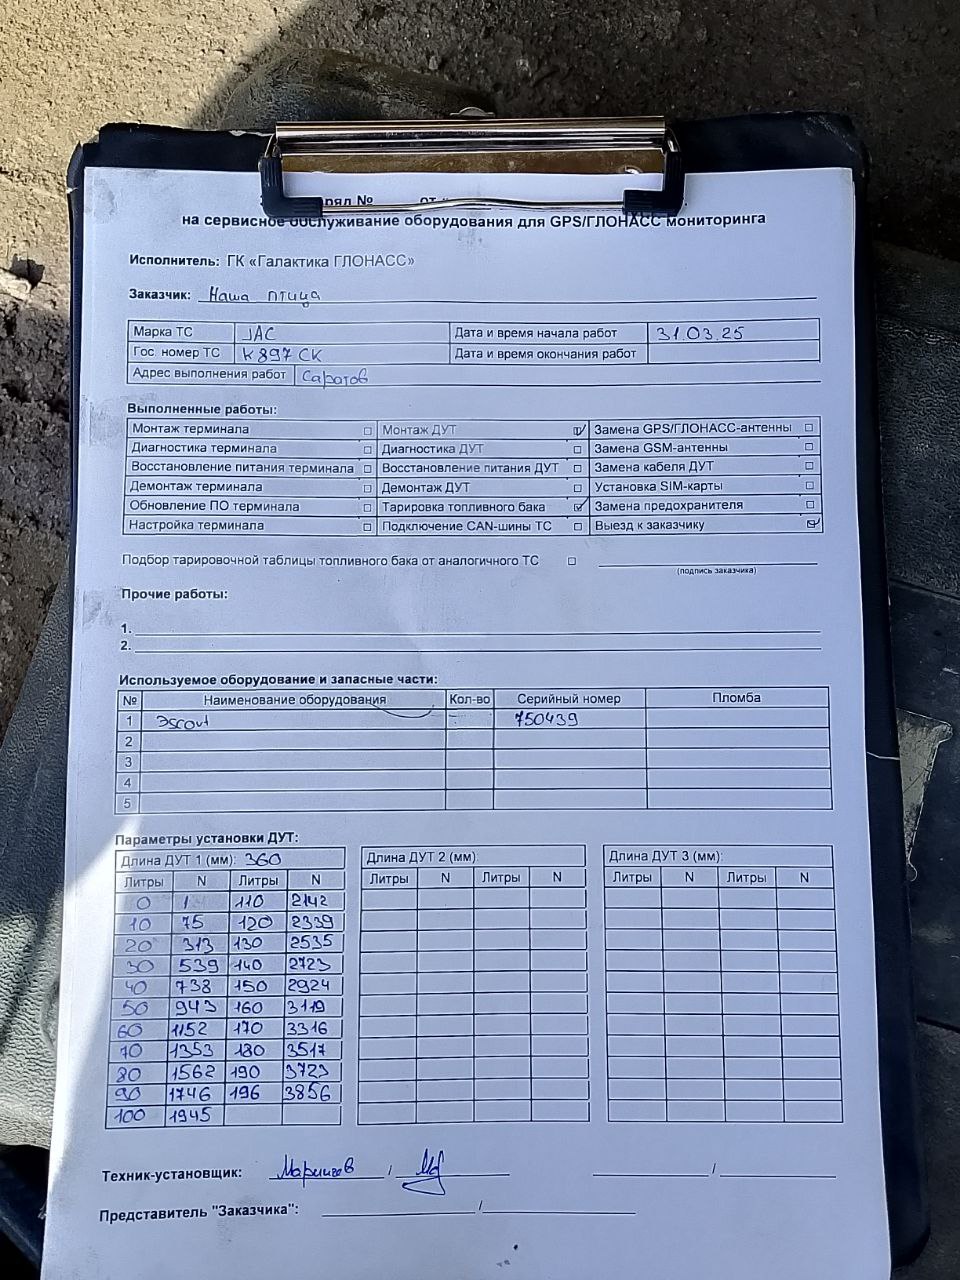 ряд № от
на сервисное обслуживание оборудования для GPS/ГЛОНАСС мониторинга
Исполнитель: ГК «Галактика ГЛОНАСС»
Заказчик: Наша птица
Марка ТС JAC Дата и время начала работ 31.03.25
Гос. номер ТС К897СК Дата и время окончания работ
Адрес выполнения работ Саратов
Выполненные работы:
Монтаж терминала □ Монтаж ДУТ ☑ Замена GPS/ГЛОНАСС-антенны □
Диагностика терминала □ Диагностика ДУТ □ Замена GSM-антенны □
Восстановление питания терминала □ Восстановление питания ДУТ □ Замена кабеля ДУТ □
Демонтаж терминала □ Демонтаж ДУТ □ Установка SIM-карты □
Обновление ПО терминала □ Тарировка топливного бака ☑ Замена предохранителя □
Настройка терминала □ Подключение CAN-шины ТС □ Выезд к заказчику ☑
Подбор тарировочной таблицы топливного бака от аналогичного ТС □
(подпись заказчика)
Прочие работы:
1.
2.
Используемое оборудование и запасные части:
№ Наименование оборудования Кол-во Серийный номер Пломба
1 Эscort 750439
2
3
4
5
Параметры установки ДУТ:
Длина ДУТ 1 (мм): 360 Длина ДУТ 2 (мм): Длина ДУТ 3 (мм):
Литры N Литры N Литры N Литры N Литры N Литры N
0 1 110 2142
10 75 120 2339
20 313 130 2535
30 539 140 2723
40 738 150 2924
50 943 160 3119
60 1152 170 3316
70 1353 180 3517
80 1562 190 3723
90 1746 196 3856
100 1945
Техник-установщик: / /
Представитель "Заказчика": /